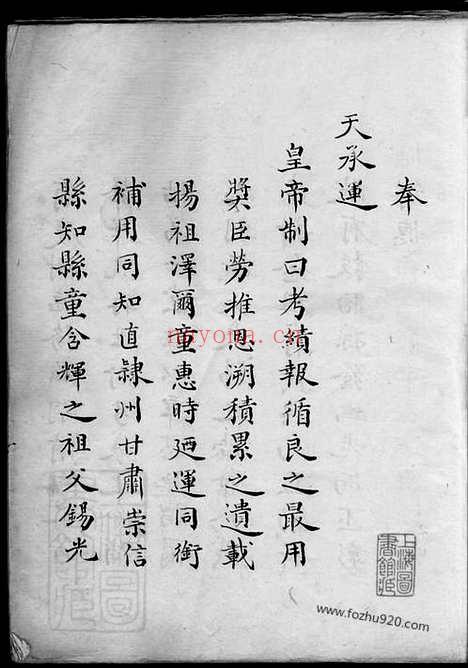 奉
天承運
皇帝制曰考績報循良之最用
獎臣勞推恩溯積累之遺載
揚祖澤爾童惠時廼運同銜
補用同知直隸州甘肅崇信
縣知縣童含輝之祖父錫光
上海圖書館藏
nayona.cn
www.fozhu920.com